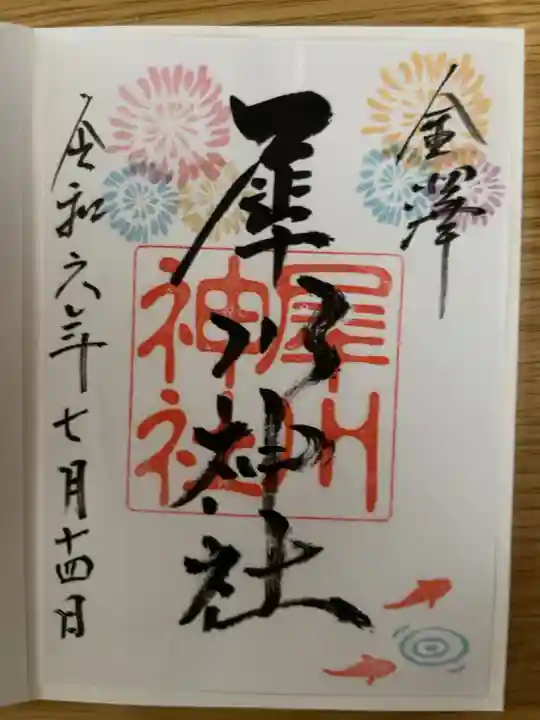 金澤
犀川神社
犀川神社
令和六年七月十四日